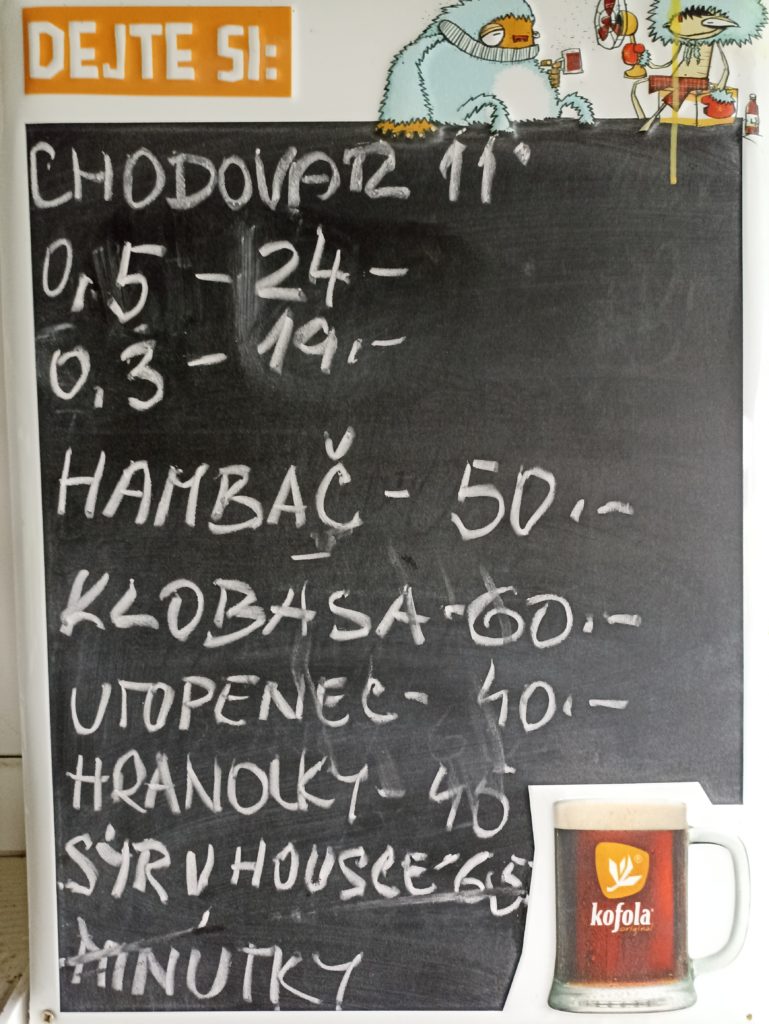 DEJTE SI:
CHODOVAR 11°
0,5 - 24 -
0,3 - 19.-
HAMBAČ - 50.-
KLOBASA - 60.-
UTOPENEC - 40.-
HRANOLKY - 45
SÝR V HOUSCE - 65
MINUTKY
kofola
original